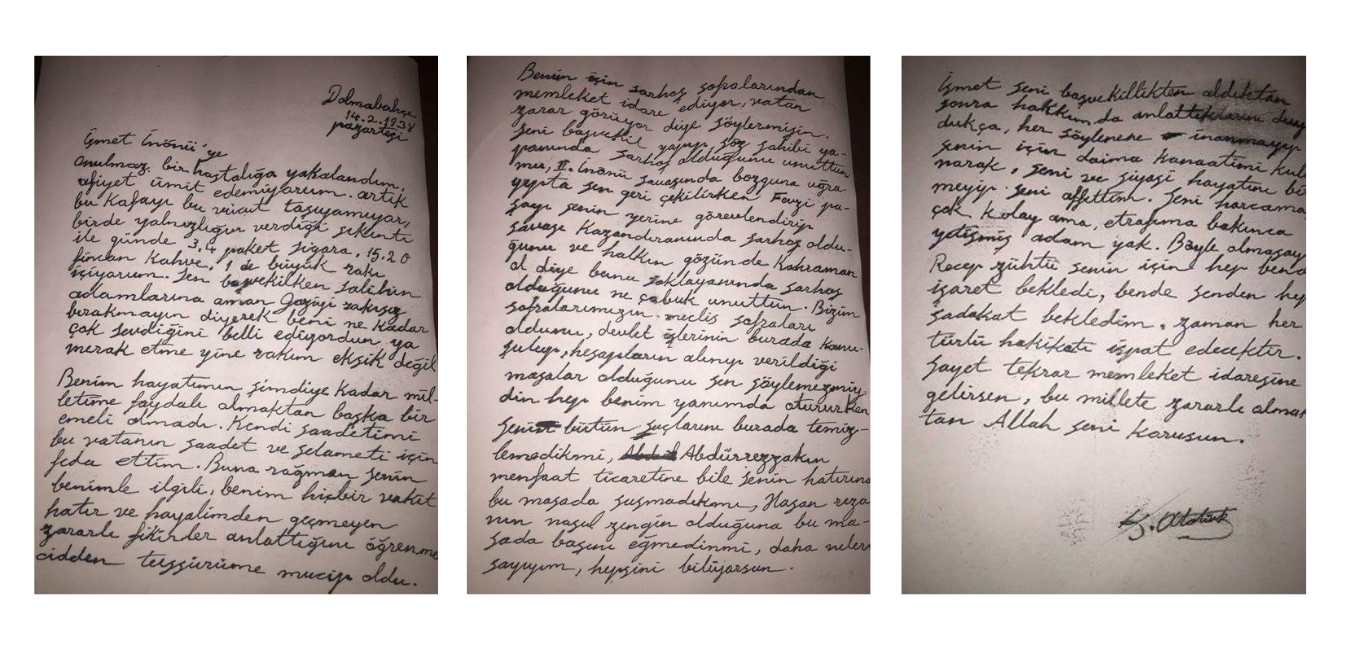 Dolmabahçe
14.2.1938
pazartesi
İsmet İnönü'ye
Onulmaz bir hastalığa yakalandım,
afiyet ümit edemiyorum. artık
bu kafayı bu vücut taşıyamıyor,
birde yalnızlığın verdiği sıkıntı
ile günde 3,4 paket sigara, 15.20
fincan kahve, 1 de büyük rakı
içiyorum. Sen başvekilken Salihin
adamlarına aman Gaziyi rakısız
bırakmayın diyerek beni ne kadar
çok sevdiğini belli ediyordun, ya
merak etme yine rakım eksik değil
Benim hayatımın şimdiye kadar mil-
letime faydalı olmaktan başka bir
emeli olmadı. Kendi saadetimi
bu vatanın saadet ve selameti için
feda ettim. Buna rağmen senin
benimle ilgili, benim hiçbir vakit
hatır ve hayalimden geçmeyen
zararlı fikirler anlattığını öğrenme
cidden teessürüme mucip oldu.
Benim için sarhoş sofralarından
memleket idare ediyor, vatan
zarar görüyor diye söylemişsin.
Seni başvekil yapıp, söz sahibi ya-
panında sarhoş olduğunu unuttun
mu, II. İnönü savaşında bozguna uğra
yıpta sen geri çekilirken Fevzi pa-
şayı senin yerine görevlendirip
savaşı kazandıranında sarhoş oldu-
ğunu ve halkın gözünde kahraman
ol diye bunu saklayanında sarhoş
olduğunu ne çabuk unuttun. Bizim
sofralarımızın meclis sofraları
oldunu, devlet işlerinin burada konu-
şulup, hesapların alınıp verildiği
masalar olduğunu sen söylemezmiy-
din hep benim yanımda otururken
Senin bütün suçlarını burada temiz-
lemedikmi, Abdürrezzakın
menfaat ticaretine bile senin hatırına
bu masada susmadıkmı, Hasan rıza
nın nasıl zengin olduğuna bu ma-
sada başını eğmedinmi, daha neler
sayayım, hepsini biliyorsun.
İsmet seni başvekillikten aldıktan
sonra hakkımda anlattıklarını duy
dukça, her söylenene inanmayıp
senin için daima kanaatimi kul
narak, seni ve siyasi hayatını bi
meyip seni affettim. Seni harcama
çok kolay ama, etrafıma bakınca
yetişmiş adam yok. Böyle olmasay
Recep Zühtü senin için hep bend
işaret bekledi, bende senden hep
sadakat bekledim, zaman her
türlü hakikatı ispat edecektir.
Şayet tekrar memleket idaresine
gelirsen, bu millete zararlı olmak
tan Allah seni korusun.
K. Atatürk